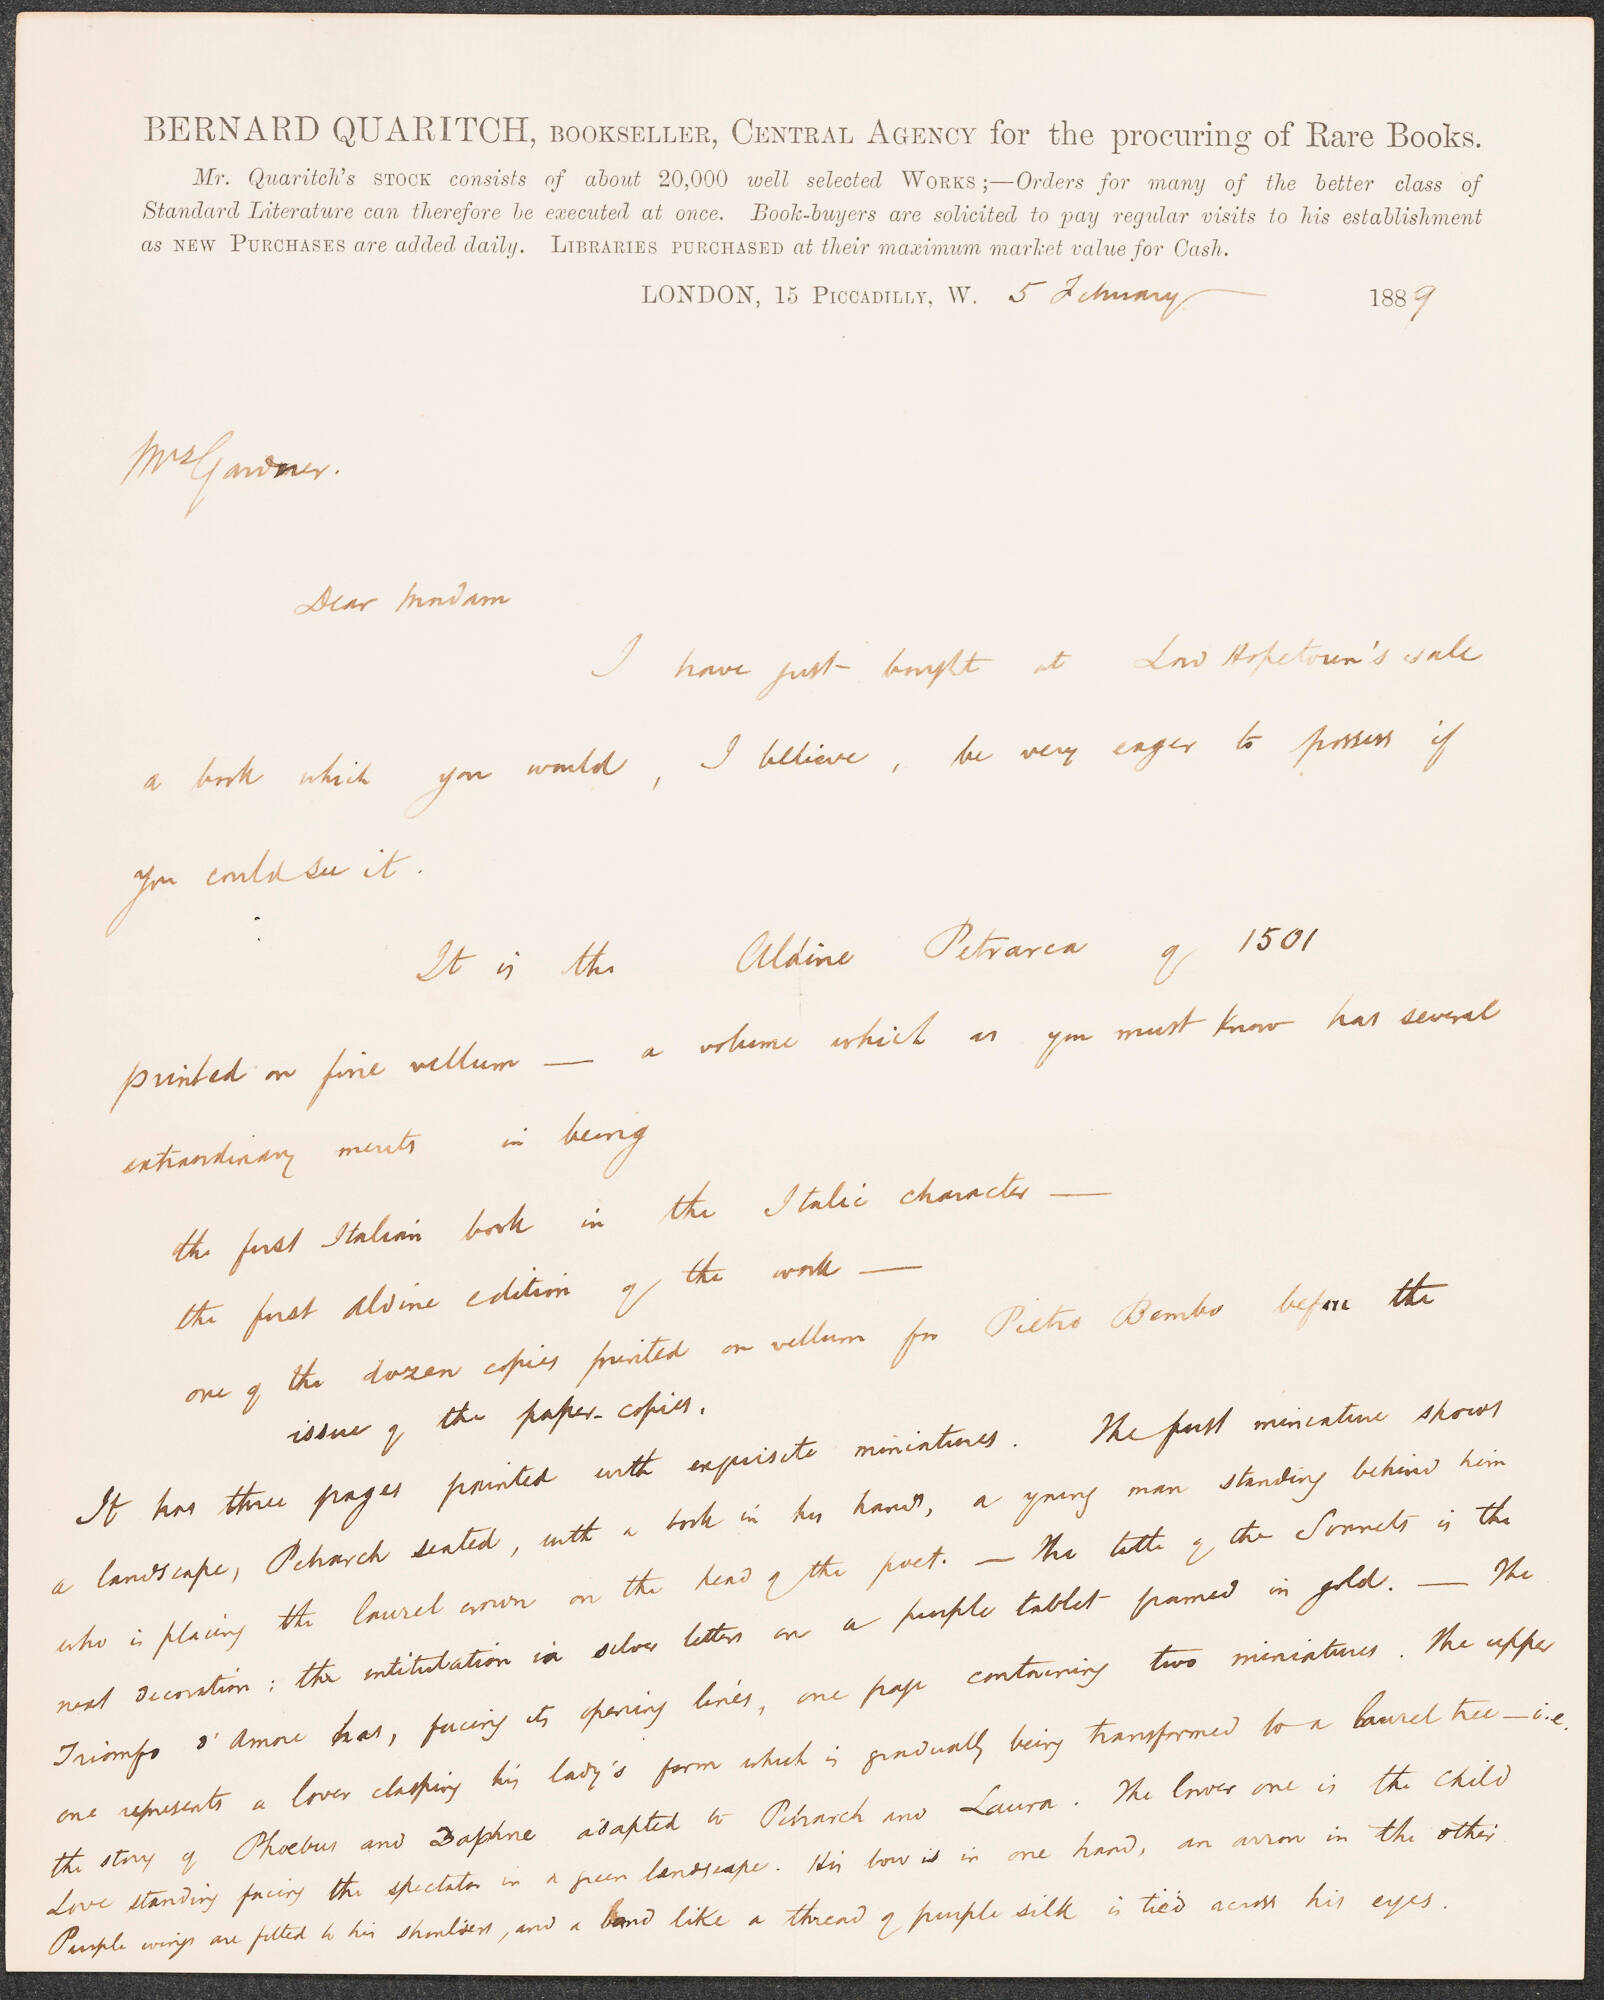 BERNARD QUARITCH, BOOKSELLER, CENTRAL AGENCY for the procuring of Rare Books.
Mr. Quaritch's STOCK consists of about 20,000 well selected WORKS;—Orders for many of the better class of
Standard Literature can therefore be executed at once. Book-buyers are solicited to pay regular visits to his establishment
as NEW PURCHASES are added daily. LIBRARIES PURCHASED at their maximum market value for Cash.
LONDON, 15 PICCADILLY, W. 5 February 1889
Mrs Gardner.
Dear Madam
I have just bought at Lord Hopetoun's sale
a book which you would, I believe, be very eager to possess if
you could see it.
It is the Aldine Petrarca of 1501
printed on fine vellum — a volume which as you must know has several
extraordinary merits in being
the first Italian book in the Italic character —
the first Aldine edition of the work —
one of the dozen copies printed on vellum for Pietro Bembo before the
issue of the paper-copies.
It has three pages painted with exquisite miniatures. The first miniature shows
a landscape, Petrarch seated, with a book in his hands, a young man standing behind him
who is placing the laurel crown on the head of the poet. — The title of the Sonnets is the
next decoration: the intitulation in silver letters on a purple tablet framed in gold. — The
Triomfo d'Amore has, facing its opening lines, one page containing two miniatures. The upper
one represents a lover clasping his lady's form which is gradually being transformed to a laurel tree — i.e.
the story of Phoebus and Daphne adapted to Petrarch and Laura. The lower one is the child
Love standing facing the spectator in a green landscape. His bow is in one hand, an arrow in the other
Purple wings are fitted to his shoulders, and a band like a thread of purple silk is tied across his eyes.